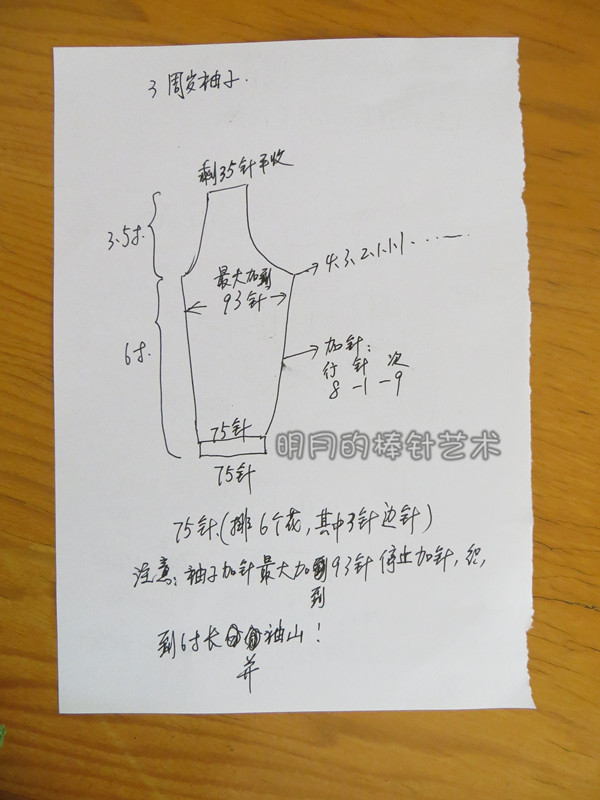 3周岁袖子.
剩35针平收
3.5寸.
4.3.2.1.1.1.......
最大加到
93针
6寸.
加针:
行 针 次
8-1-9
75针
明月的棒针艺术
75针
75针(排6个花,其中3针边针)
注意:袖子加针最大加到93针停止加针,织,
到6寸长并袖山!